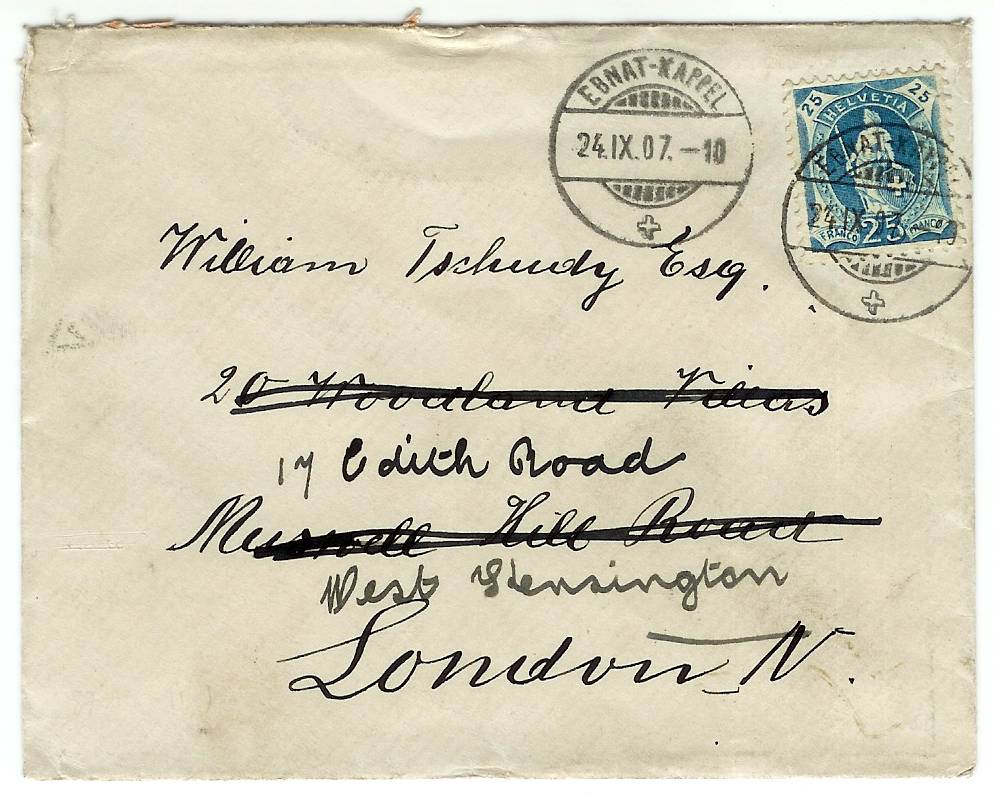 EBNAT-KAPPEL
24.IX.07.-10
25 HELVETIA 25
EBNAT-KAPPEL
24.IX.07
FRANCO 25 FRANCO
William Tschudy Esq.
20 Woodland Villas
17 Edith Road
Muswell Hill Road
West Kensington
London N.